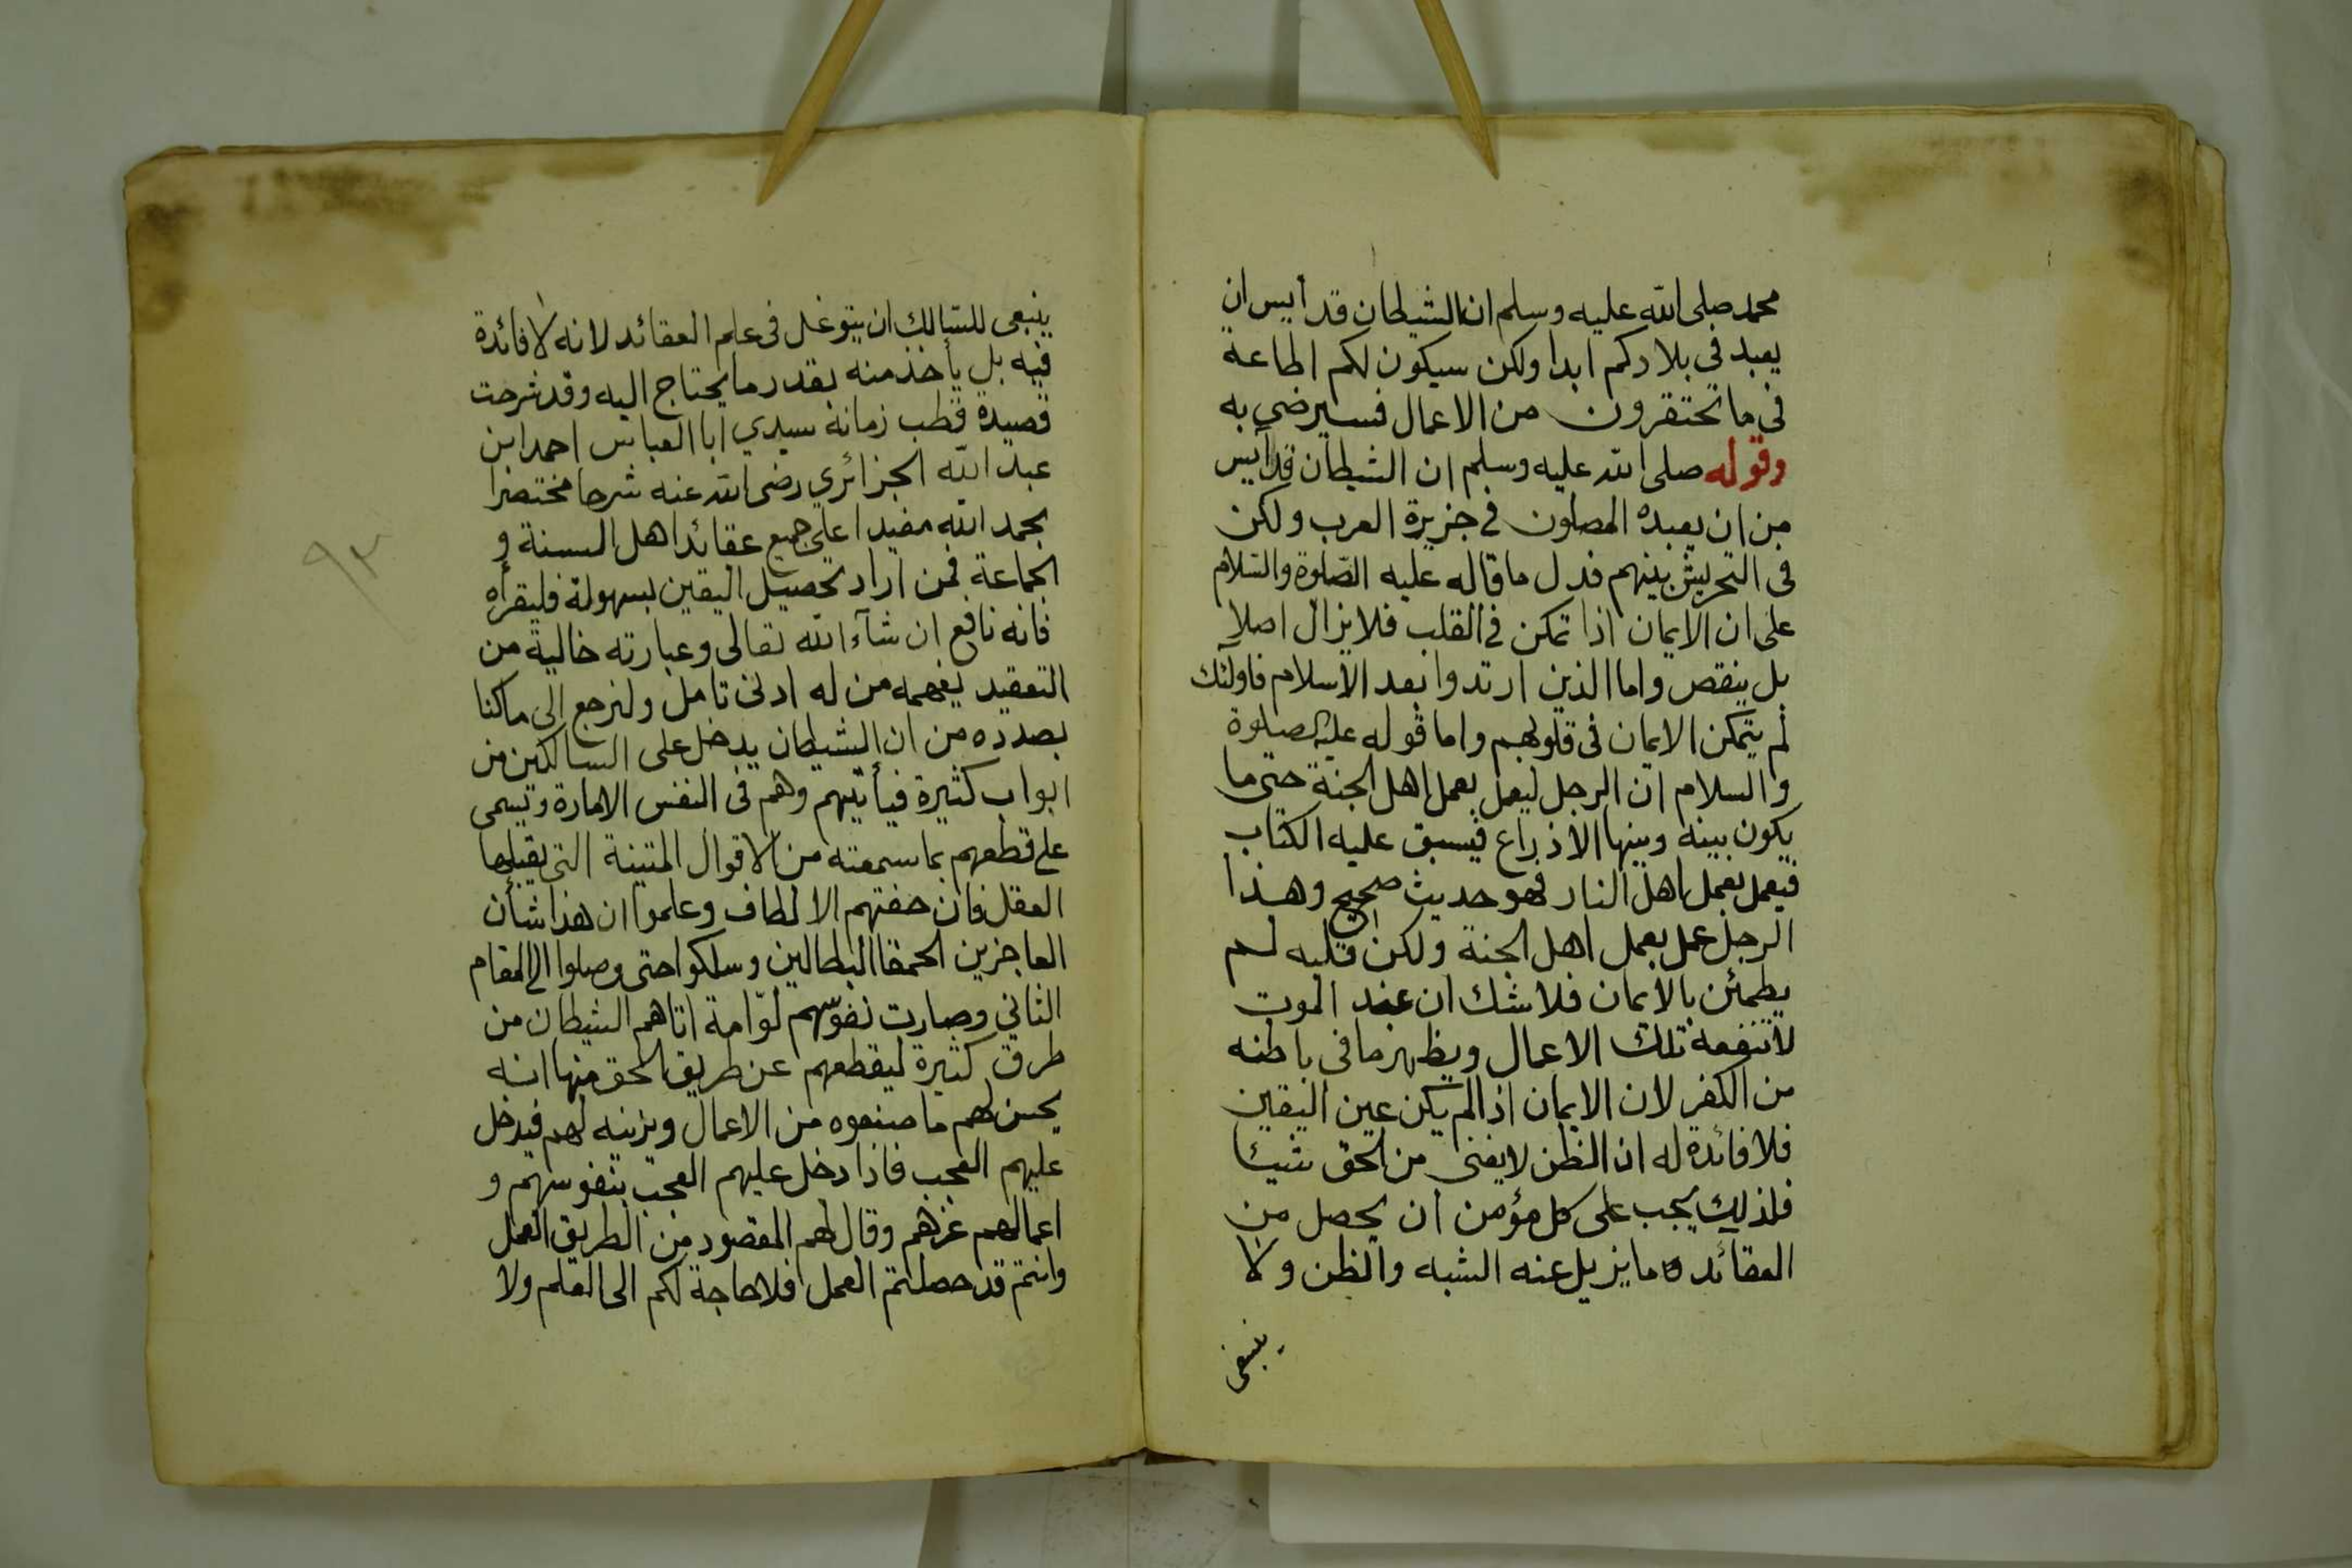 محمد صلى الله عليه وسلم ان الشيطان قد أيس ان
يعبد فى بلادكم ابدا ولكن سيكون لكم اطاعة
فى ما تحتقرون من الاعمال فسيرضى به
وقوله صلى الله عليه وسلم ان الشيطان قد أيس
من ان يعبده المصلون فى جزيرة العرب ولكن
فى التحريش بينهم فدل ما قاله عليه الصّلوة والسّلام
على ان الايمان اذا تمكن فى القلب فلا يزال اصلا
بل ينقص واما الذين ارتدوا بعد الاسلام فاولئك
لم يتمكن الايمان فى قلوبهم واما قوله عليه الصلوة
والسلام ان الرجل ليعمل بعمل اهل الجنة حتى ما
يكون بينه وبينها الا ذراع فيسبق عليه الكتاب
فيعمل بعمل اهل النار فهو حديث صحيح وهذا
الرجل عمل بعمل اهل الجنة ولكن قلبه لم
يطمئن بالايمان فلا شك ان عند الموت
لا تنفعه تلك الاعمال ويظهر ما فى باطنه
من الكفر لان الايمان اذا لم يكن عين اليقين
فلا فائدة له ان الظن لا يغنى من الحق شيئا
فلذلك يجب على كل مؤمن ان يحصل من
العقائد ما يزيل عنه الشبه والظن ولا
ينبغى
ينبغى للسّالك ان يتوغل فى علم العقائد لانه لا فائدة
فيه بل يأخذ منه بقدر ما يحتاج اليه وقد شرحت
قصيدة قطب زمانه سيدي ابا العباس احمد ابن
عبد الله الجزائري رضى الله عنه شرحا مختصرا
بحمد الله مفيدا على جميع عقائد اهل السنة و
الجماعة فمن اراد تحصيل اليقين بسهولة فليقرأه
فانه نافع ان شآء الله تعالى وعبارته خالية من
التعقيد يفهمه من له ادنى تامل ولنرجع الى ما كنا
بصدده من ان الشيطان يدخل على السالكين من
ابواب كثيرة فيأتيهم وهم فى النفس الامارة وتسمى
على قطعهم بما سمعته من الاقوال المتينة التى يقبلها
العقل فان حفتهم الالطاف وعلموا ان هذا شأن
العاجزين الحمقا البطالين وسلكوا حتى وصلوا الى المقام
الثاني وصارت نفوسهم لوّامة اتاهم الشيطان من
طرق كثيرة ليقطعهم عن طريق الحق منها انه
يحسن لهم ما صنعوه من الاعمال ويزينه لهم فيدخل
عليهم العجب فاذا دخل عليهم العجب بنفوسهم و
اعمالهم غرهم وقال لهم المقصود من الطريق العمل
وانتم قد حصلتم العمل فلا حاجة لكم الى العلم ولا
٩٣